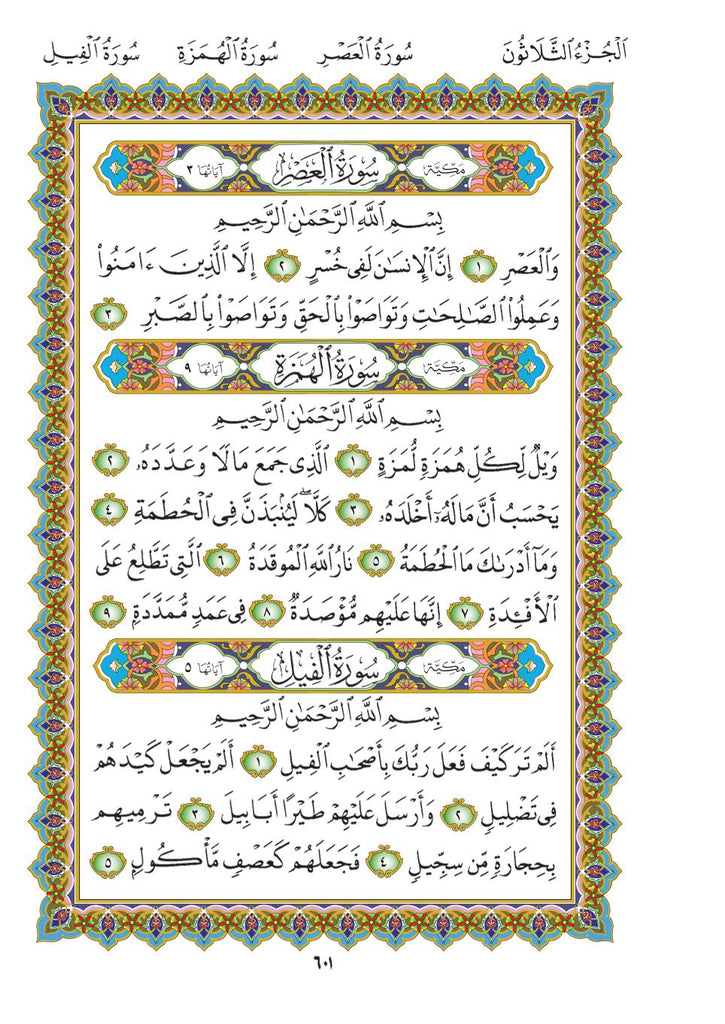 الجُزْءُ الثَّلَاثُونَ سُورَةُ العَصْرِ سُورَةُ الهُمَزَةِ سُورَةُ الفِيلِ
مَكِّيَّة سُورَةُ العَصْرِ آيَاتُهَا ٣
بِسْمِ ٱللَّهِ ٱلرَّحْمَٰنِ ٱلرَّحِيمِ
وَٱلْعَصْرِ ١ إِنَّ ٱلْإِنسَٰنَ لَفِى خُسْرٍ ٢ إِلَّا ٱلَّذِينَ ءَامَنُوا۟
وَعَمِلُوا۟ ٱلصَّٰلِحَٰتِ وَتَوَاصَوْا۟ بِٱلْحَقِّ وَتَوَاصَوْا۟ بِٱلصَّبْرِ ٣
مَكِّيَّة سُورَةُ الهُمَزَةِ آيَاتُهَا ٩
بِسْمِ ٱللَّهِ ٱلرَّحْمَٰنِ ٱلرَّحِيمِ
وَيْلٌ لِّكُلِّ هُمَزَةٍ لُّمَزَةٍ ١ ٱلَّذِى جَمَعَ مَالًا وَعَدَّدَهُۥ ٢
يَحْسَبُ أَنَّ مَالَهُۥٓ أَخْلَدَهُۥ ٣ كَلَّا ۖ لَيُنۢبَذَنَّ فِى ٱلْحُطَمَةِ ٤
وَمَآ أَدْرَىٰكَ مَا ٱلْحُطَمَةُ ٥ نَارُ ٱللَّهِ ٱلْمُوقَدَةُ ٦ ٱلَّتِى تَطَّلِعُ عَلَى
ٱلْأَفْـِٔدَةِ ٧ إِنَّهَا عَلَيْهِم مُّؤْصَدَةٌ ٨ فِى عَمَدٍ مُّمَدَّدَةٍۭ ٩
مَكِّيَّة سُورَةُ الفِيلِ آيَاتُهَا ٥
بِسْمِ ٱللَّهِ ٱلرَّحْمَٰنِ ٱلرَّحِيمِ
أَلَمْ تَرَ كَيْفَ فَعَلَ رَبُّكَ بِأَصْحَٰبِ ٱلْفِيلِ ١ أَلَمْ يَجْعَلْ كَيْدَهُمْ
فِى تَضْلِيلٍ ٢ وَأَرْسَلَ عَلَيْهِمْ طَيْرًا أَبَابِيلَ ٣ تَرْمِيهِم
بِحِجَارَةٍ مِّن سِجِّيلٍ ٤ فَجَعَلَهُمْ كَعَصْفٍ مَّأْكُولٍۭ ٥
٦٠١